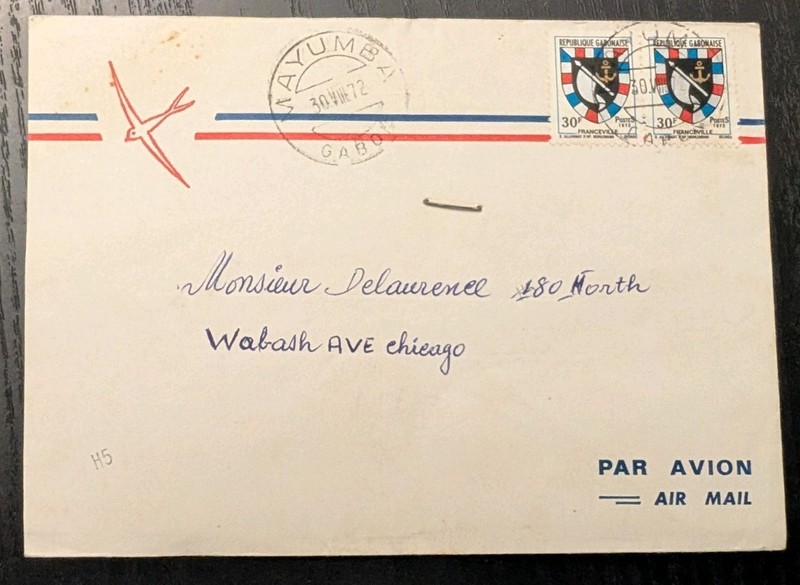 MAYUMBA
30.VIII.72
GABON
REPUBLIQUE GABONAISE
30F POSTES
1972
FRANCEVILLE
REPUBLIQUE GABONAISE
30.VIII
30F POSTES
1972
FRANCEVILLE
Monsieur Delaurence 180 North
Wabash AVE chicago
H5
PAR AVION
AIR MAIL